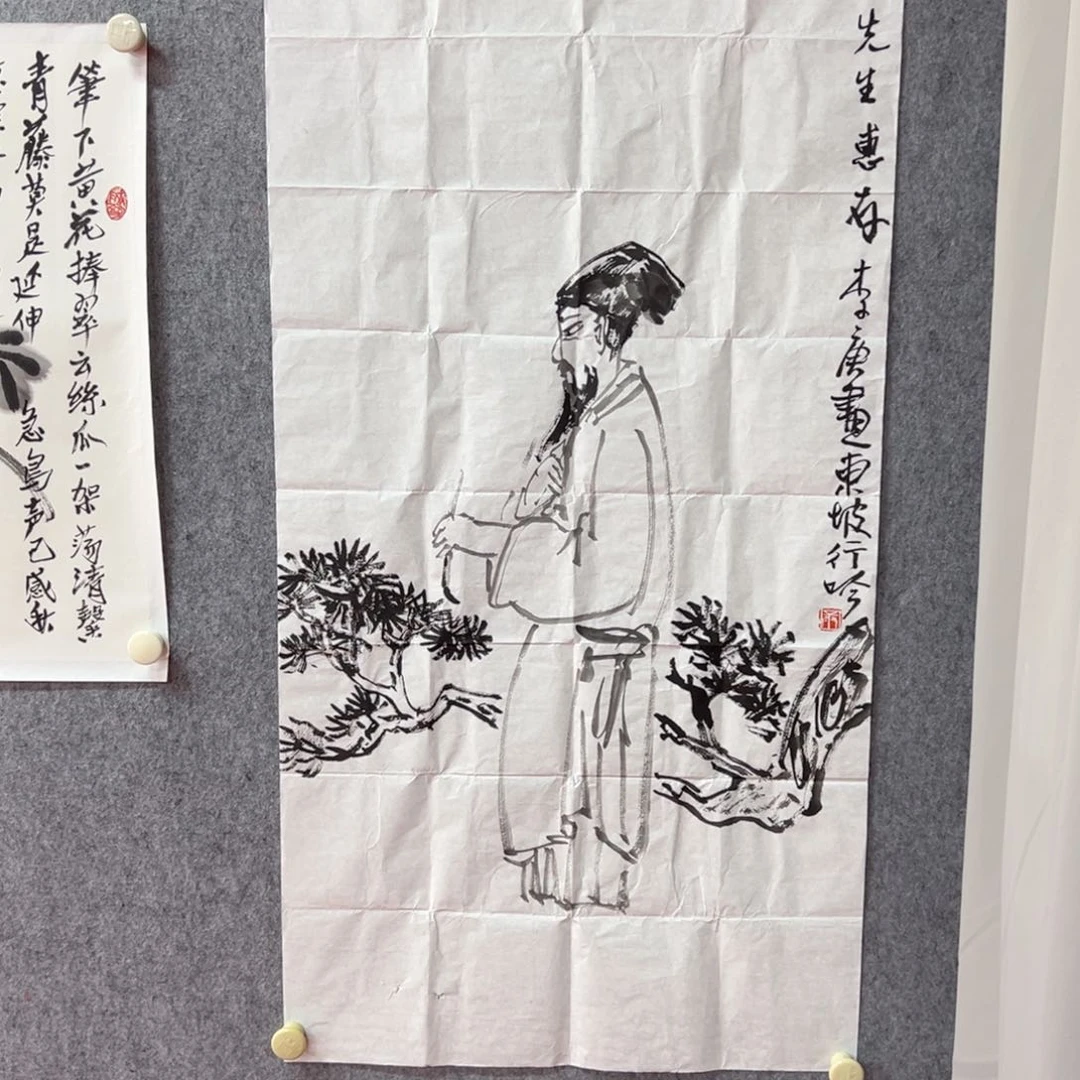 先生惠存 李庚畫東坡行吟
筆下黄花捧翠云絲瓜一架荡清
青藤莫是延伸急鳥声已感秋